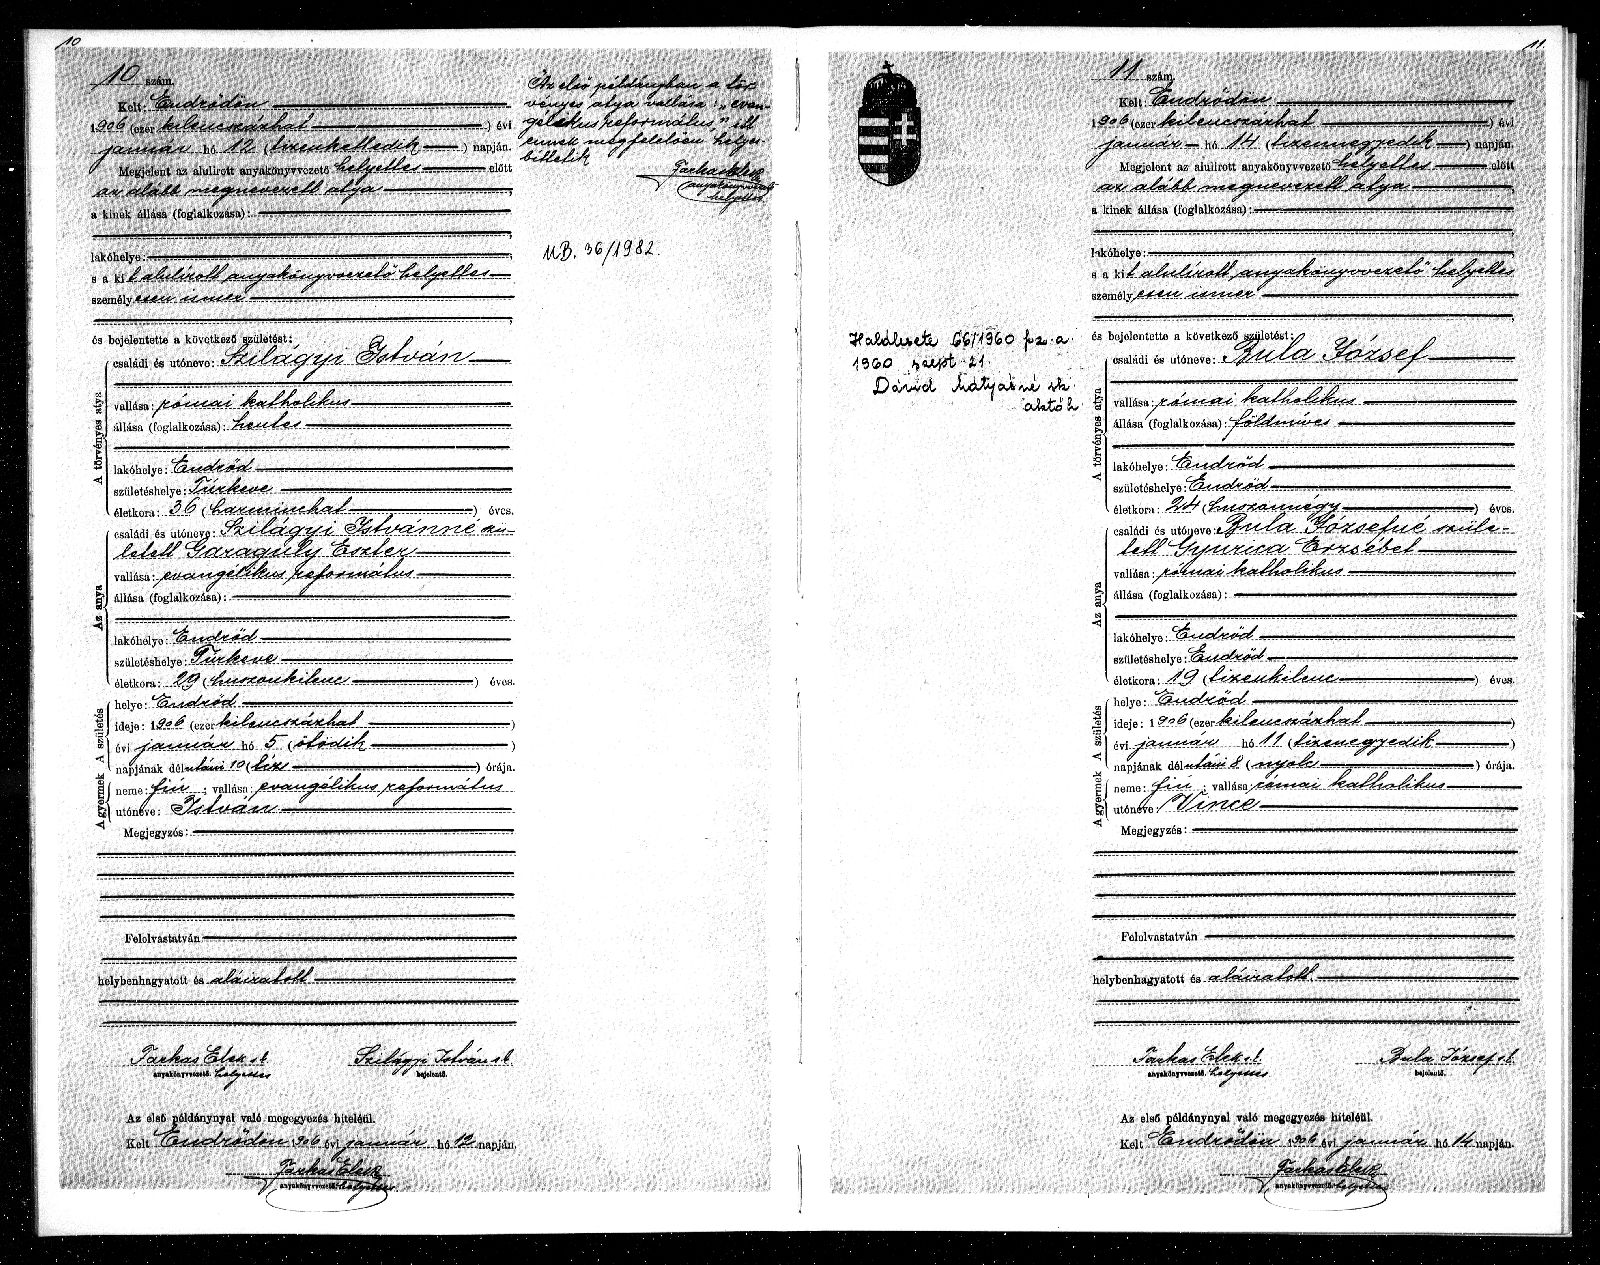 10
10 szám.
Kelt: Endrődön
1906 (ezer kilenczszázhat) évi
január hó 12 (tizenkettedik) napján.
Megjelent az alulirott anyakönyvvezető helyettes előtt
az alább megnevezett atya
a kinek állása (foglalkozása):
lakóhelye:
s a kit alulírott anyakönyvvezető helyettes
személyesen ismer
és bejelentette a következő születést:
A törvényes atya
családi és utóneve: Szilágyi István
vallása: római katholikus
állása (foglalkozása): hentes
lakóhelye: Endrőd
születéshelye: Túrkeve
életkora: 36 (harminchat) éves.
Az anya
családi és utóneve: Szilágyi Istvánné szü-
letett Garaguly Eszter
vallása: evangélikus református
állása (foglalkozása):
lakóhelye: Endrőd
születéshelye: Túrkeve
életkora: 29 (huszonkilenc) éves.
A születés
helye: Endrőd
ideje: 1906 (ezer kilencszázhat)
évi január hó 5 (ötödik)
napjának délutáni 10 (tíz) órája.
A gyermek
neme: fiú; vallása: evangélikus református
utóneve: István
Megjegyzés:
Felolvastatván
helybenhagyatott és aláiratott
Farkas Elek s.k. Szilágyi István s.k.
anyakönyvvezető helyettes bejelentő.
Az első példánynyal való megegyezés hiteléül.
Kelt Endrődön 1906 évi január hó 12 napján.
Farkas Elek
anyakönyvvezető helyettes
Az első példányban a tör-
vényes atya vallása: „evan-
gélikus református," itt
ennek megfelelően helyes-
bittetik
Farkas Elek
anyakönyvvezető
helyettes
MB. 36/1982.
11.
11 szám.
Kelt: Endrődön
1906 (ezer kilencszázhat) évi
január hó 14 (tizennegyedik) napján.
Megjelent az alulirott anyakönyvvezető helyettes előtt
az alább megnevezett atya
a kinek állása (foglalkozása):
lakóhelye:
s a kit alulírott anyakönyvvezető helyettes
személyesen ismer
és bejelentette a következő születést:
A törvényes atya
családi és utóneve: Bula József
vallása: római katholikus
állása (foglalkozása): földmíves
lakóhelye: Endrőd
születéshelye: Endrőd
életkora: 24 (huszonnégy) éves.
Az anya
családi és utóneve: Bula Józsefné szüle-
tett Gyurica Erzsébet
vallása: római katholikus
állása (foglalkozása):
lakóhelye: Endrőd
születéshelye: Endrőd
életkora: 19 (tizenkilenc) éves.
A születés
helye: Endrőd
ideje: 1906 (ezer kilencszázhat)
évi január hó 11 (tizenegyedik)
napjának délutáni 8 (nyolc) órája.
A gyermek
neme: fiú; vallása: római katholikus
utóneve: Vince
Megjegyzés:
Felolvastatván
helybenhagyatott és aláiratott.
Farkas Elek s.k. Bula József s.k.
anyakönyvvezető helyettes bejelentő.
Az első példánynyal való megegyezés hiteléül.
Kelt Endrődön 1906 évi január hó 14 napján.
Farkas Elek
anyakönyvvezető helyettes
Halálesete 66/1960 fsz. a.
1960 szept 21
Dávid Mátyásné sk.